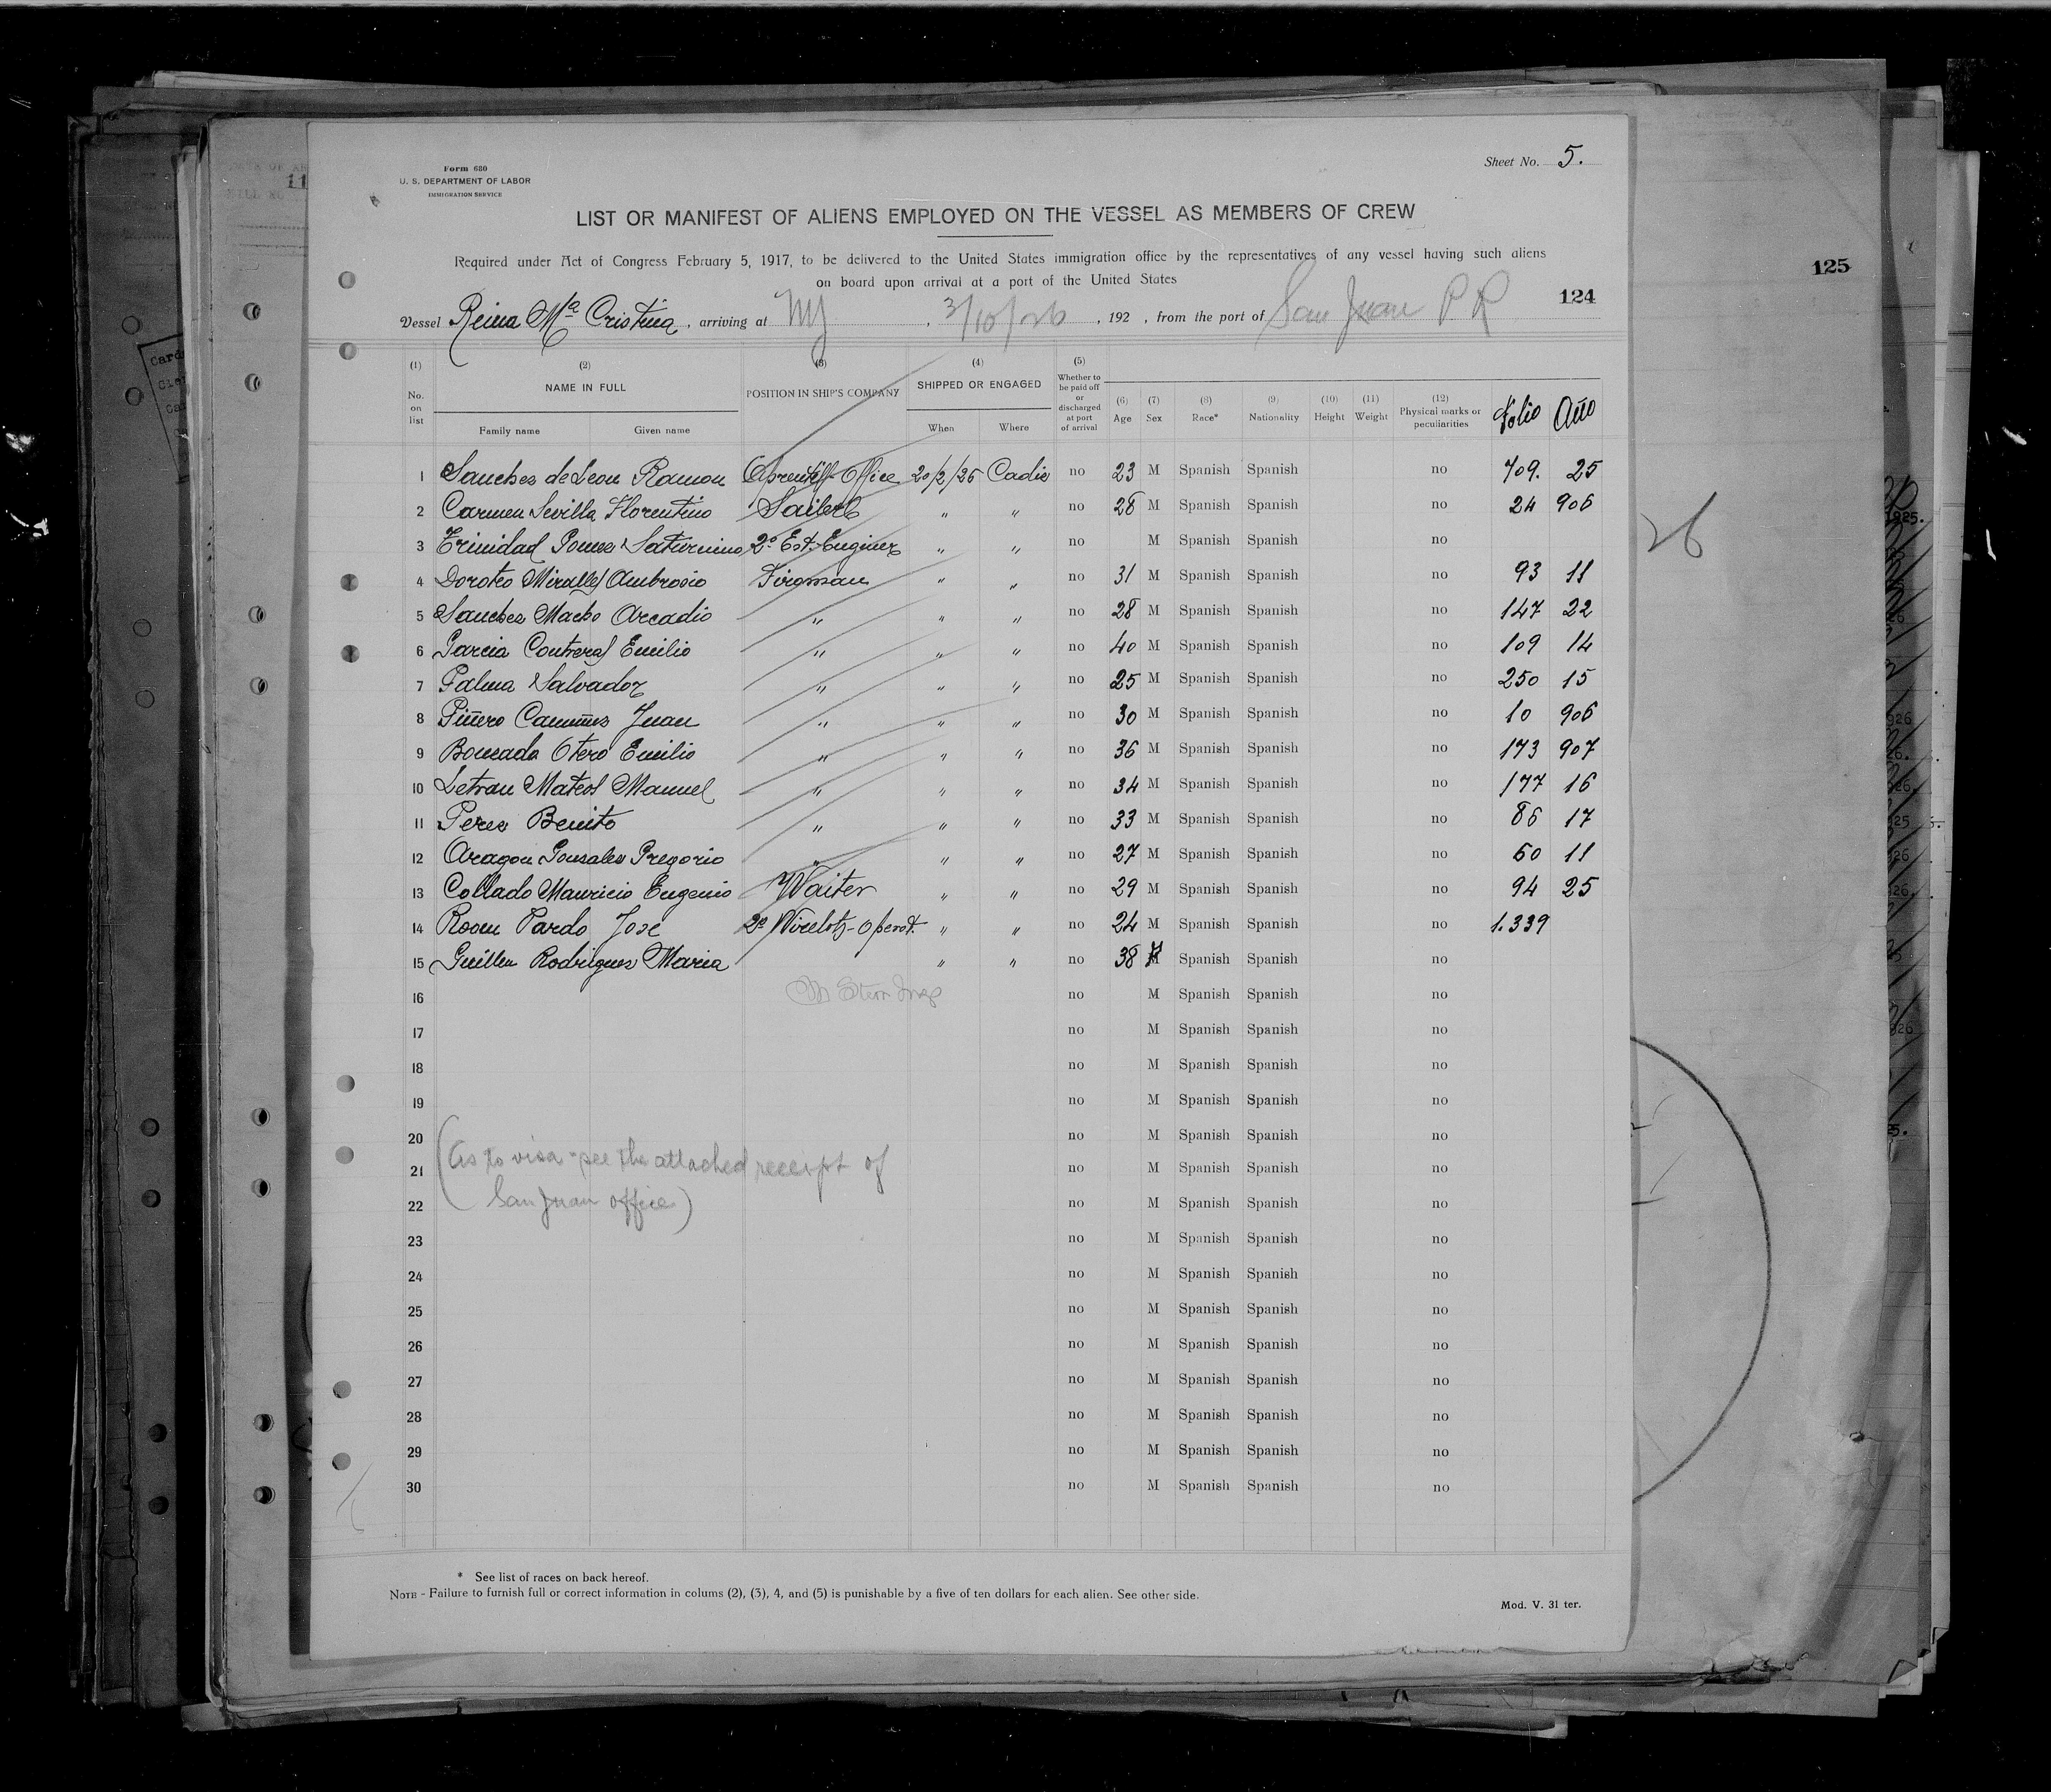 Sheet No. 5.
Form 680
U. S. DEPARTMENT OF LABOR
IMMIGRATION SERVICE
LIST OR MANIFEST OF ALIENS EMPLOYED ON THE VESSEL AS MEMBERS OF CREW
Required under Act of Congress February 5, 1917, to be delivered to the United States immigration office by the representatives of any vessel having such aliens
on board upon arrival at a port of the United States
125
124
Vessel Reina Mª Cristina, arriving at NY, 3/10/26, 192 , from the port of San Juan P R
(1) (2) (3) (4) (5)
No. on list NAME IN FULL POSITION IN SHIP'S COMPANY SHIPPED OR ENGAGED Whether to be paid off or discharged at port of arrival (6) Age (7) Sex (8) Race* (9) Nationality (10) Height (11) Weight (12) Physical marks or peculiarities Folio Año
Family name Given name When Where
1 Sanches de Leon Ramon Office 20/2/26 Cadiz no 23 M Spanish Spanish no 709. 25
2 Carmen Sevilla Florentino " " no 28 M Spanish Spanish no 24 906
3 Trinidad Saturnino " " no M Spanish Spanish no
4 Doroteo Miralles Ambrosio Firoman " " no 31 M Spanish Spanish no 93 11
5 Sanches Macho Arcadio " " " no 28 M Spanish Spanish no 147 22
6 Garcia Contreras Emilio " " " no 40 M Spanish Spanish no 109 14
7 Palma Salvador " " " no 25 M Spanish Spanish no 250 15
8 Piñero Juan " " " no 30 M Spanish Spanish no 10 906
9 Otero Emilio " " " no 36 M Spanish Spanish no 173 907
10 Letran Mateos Manuel " " " no 34 M Spanish Spanish no 177 16
11 Peres Benito " " " no 33 M Spanish Spanish no 86 17
12 Aragon Gonsales Gregorio " " " no 27 M Spanish Spanish no 60 11
13 Collado Mauricio Eugenio Waiter " " no 29 M Spanish Spanish no 94 25
14 Pardo Jose 2º " " no 24 M Spanish Spanish no 1.339
15 Guillen Rodrigues Maria " " no 38 Spanish Spanish no
16 no M Spanish Spanish no
17 no M Spanish Spanish no
18 no M Spanish Spanish no
19 no M Spanish Spanish no
20 no M Spanish Spanish no
(As to visa - see the attached receipt of
21 no M Spanish Spanish no
San Juan office)
22 no M Spanish Spanish no
23 no M Spanish Spanish no
24 no M Spanish Spanish no
25 no M Spanish Spanish no
26 no M Spanish Spanish no
27 no M Spanish Spanish no
28 no M Spanish Spanish no
29 no M Spanish Spanish no
30 no M Spanish Spanish no
26
* See list of races on back hereof.
NOTE - Failure to furnish full or correct information in colums (2), (3), 4, and (5) is punishable by a five of ten dollars for each alien. See other side.
Mod. V. 31 ter.